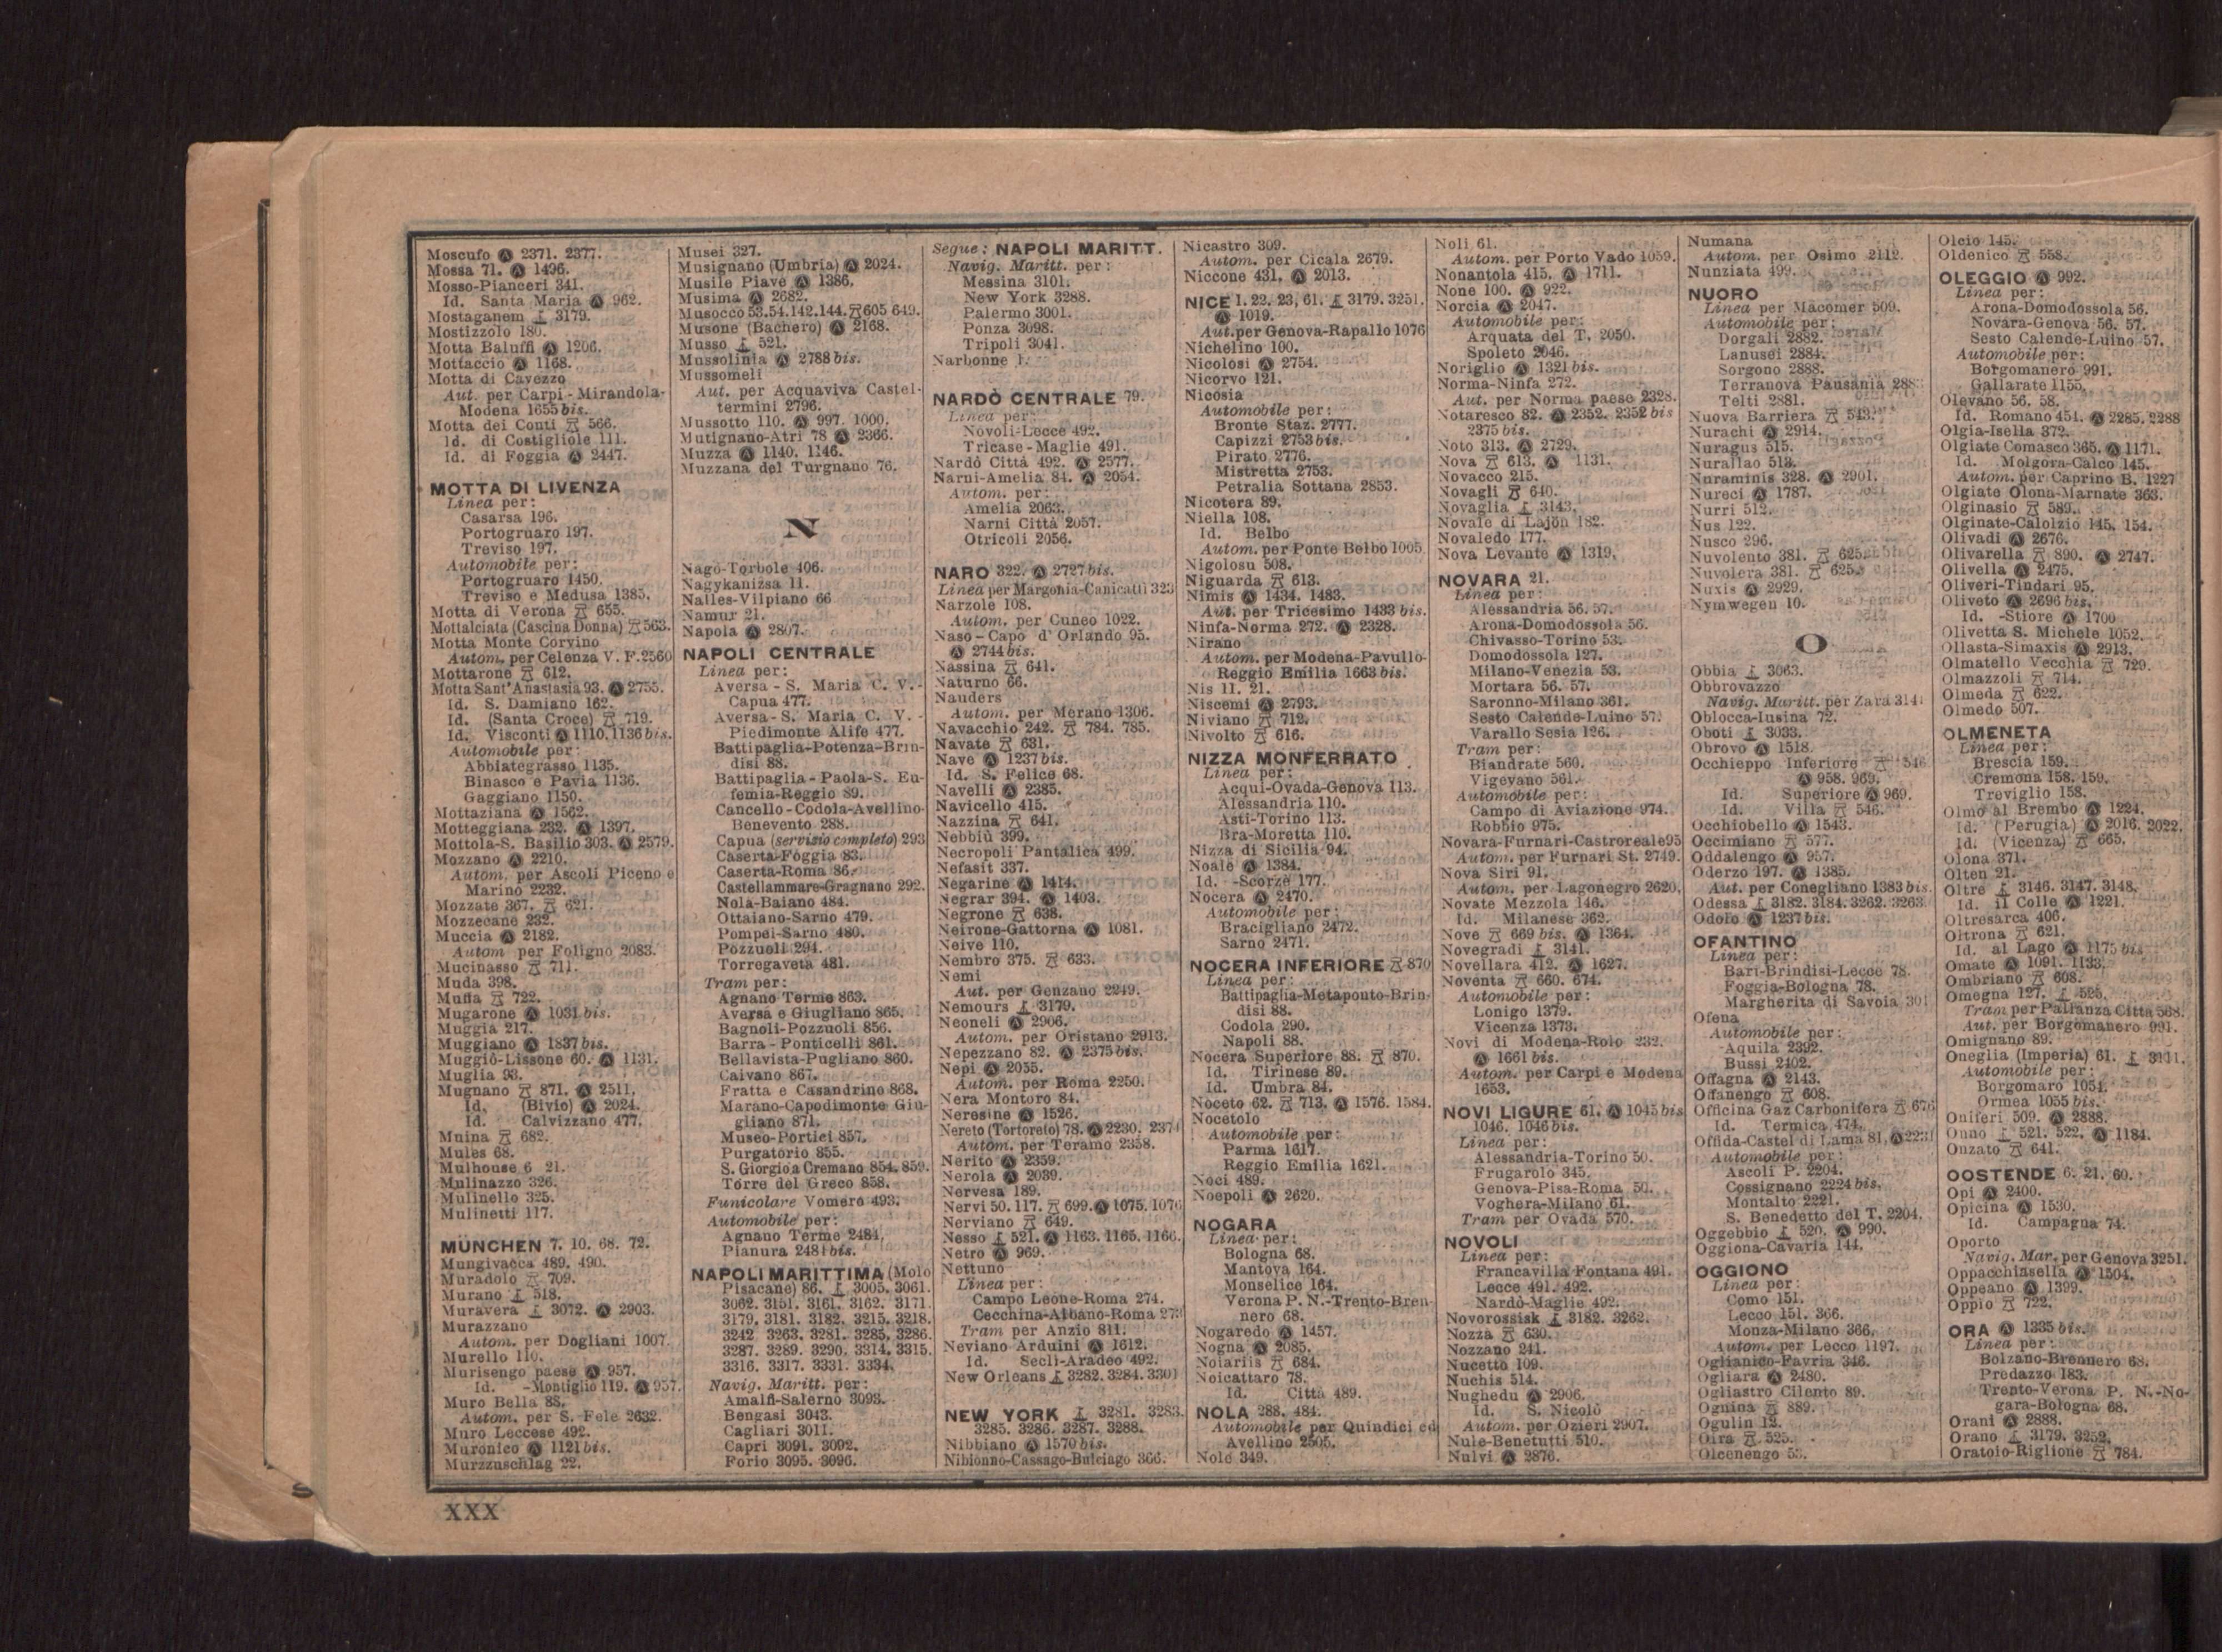 Moscufo Ⓐ 2371. 2377.
Mossa 71. Ⓐ 1496.
Mosso-Pianceri 341.
Id. Santa Maria Ⓐ 962.
Mostaganem 3179.
Mostizzolo 180.
Motta Baluffi Ⓐ 1206.
Mottaccio Ⓐ 1168.
Motta di Cavezzo
Aut. per Carpi-Mirandola-
Modena 1655 bis.
Motta dei Conti 566.
Id. di Costigliole 111.
Id. di Foggia Ⓐ 2447.
MOTTA DI LIVENZA
Linea per:
Casarsa 196.
Portogruaro 197.
Treviso 197.
Automobile per:
Portogruaro 1450.
Treviso e Medusa 1385.
Motta di Verona 655.
Mottalciata (Cascina Donna) 563.
Motta Monte Corvino
Autom. per Celenza V. F. 2560
Mottarone 612.
Motta Sant'Anastasia 93. Ⓐ 2755.
Id. S. Damiano 162.
Id. (Santa Croce) 719.
Id. Visconti Ⓐ 1110. 1136 bis.
Automobile per:
Abbiategrasso 1135.
Binasco e Pavia 1136.
Gaggiano 1150.
Mottaziana Ⓐ 1562.
Motteggiana 232. Ⓐ 1397.
Mottola-S. Basilio 303. Ⓐ 2579.
Mozzano Ⓐ 2210.
Autom. per Ascoli Piceno e
Marino 2232.
Mozzate 367. 621.
Mozzecane 232.
Muccia Ⓐ 2182.
Autom per Foligno 2083.
Mucinasso 711.
Muda 398.
Muffa 722.
Mugarone Ⓐ 1031 bis.
Muggia 217.
Muggiano Ⓐ 1837 bis.
Muggiò-Lissone 60. Ⓐ 1131.
Muglia 93.
Mugnano 871. Ⓐ 2511.
Id. (Bivio) Ⓐ 2024.
Id. Calvizzano 477.
Muina 682.
Mules 68.
Mulhouse 6 21.
Mulinazzo 326.
Mulinello 325.
Mulinetti 117.
MÜNCHEN 7. 10. 68. 72.
Mungivacca 489. 490.
Muradolo 709.
Murano 518.
Muravera 3072. Ⓐ 2903.
Murazzano
Autom. per Dogliani 1007.
Murello 110.
Murisengo paese Ⓐ 957.
Id. -Montiglio 119. Ⓐ 957.
Muro Bella 88.
Autom. per S. Fele 2632.
Muro Leccese 492.
Muronico Ⓐ 1121 bis.
Murzzuschlag 22.
Musei 327.
Musignano (Umbria) Ⓐ 2024.
Musile Piave Ⓐ 1386.
Musima Ⓐ 2682.
Musocco 53.54.142.144. 605 649.
Musone (Bachero) Ⓐ 2168.
Musso 521.
Mussolinia Ⓐ 2788 bis.
Mussomeli
Aut. per Acquaviva Castel-
termini 2796.
Mussotto 110. Ⓐ 997. 1000.
Mutignano-Atri 78 Ⓐ 2366.
Muzza Ⓐ 1140. 1146.
Muzzana del Turgnano 76.
N
Nago-Torbole 406.
Nagykanizsa 11.
Nalles-Vilpiano 66
Namur 21.
Napola Ⓐ 2807.
NAPOLI CENTRALE
Linea per:
Aversa - S. Maria C. V. -
Capua 477.
Aversa - S. Maria C. V. -
Piedimonte Alife 477.
Battipaglia-Potenza-Brin-
disi 88.
Battipaglia - Paola-S. Eu-
femia-Reggio 89.
Cancello-Codola-Avellino-
Benevento 288.
Capua (servizio completo) 293
Caserta-Foggia 83.
Caserta-Roma 86.
Castellammare-Gragnano 292.
Nola-Baiano 484.
Ottaiano-Sarno 479.
Pompei-Sarno 480.
Pozzuoli 294.
Torregaveta 481.
Tram per:
Agnano Terme 863.
Aversa e Giugliano 865.
Bagnoli-Pozzuoli 856.
Barra - Ponticelli 861.
Bellavista-Pugliano 860.
Caivano 867.
Fratta e Casandrino 868.
Marano-Capodimonte Giu-
gliano 871.
Museo-Portici 857.
Purgatorio 855.
S. Giorgio a Cremano 854. 859.
Torre del Greco 858.
Funicolare Vomero 493.
Automobile per:
Agnano Terme 2484.
Pianura 2481 bis.
NAPOLI MARITTIMA (Molo
Pisacane) 86. 3005. 3061.
3062. 3151. 3161. 3162. 3171.
3179. 3181. 3182. 3215. 3218.
3242 3263. 3281. 3285. 3286.
3287. 3289. 3290. 3314. 3315.
3316. 3317. 3331. 3334.
Navig. Maritt. per:
Amalfi-Salerno 3093.
Bengasi 3043.
Cagliari 3011.
Capri 3091. 3092.
Forio 3095. 3096.
Segue: NAPOLI MARITT.
Navig. Maritt. per:
Messina 3101.
New York 3288.
Palermo 3001.
Ponza 3098.
Tripoli 3041.
Narbonne 1.
NARDÒ CENTRALE 79.
Linea per:
Novoli-Lecce 492.
Tricase-Maglie 491.
Nardò Città 492. Ⓐ 2577.
Narni-Amelia 84. Ⓐ 2054.
Autom. per:
Amelia 2063.
Narni Città 2057.
Otricoli 2056.
NARO 322. Ⓐ 2727 bis.
Linea per Margonia-Canicatti 323
Narzole 108.
Autom. per Cuneo 1022.
Naso - Capo d'Orlando 95.
Ⓐ 2744 bis.
Nassina 641.
Naturno 66.
Nauders
Autom. per Merano 1306.
Navacchio 242. 784. 785.
Navate 631.
Nave Ⓐ 1237 bis.
Id. S. Felice 68.
Navelli Ⓐ 2385.
Navicello 415.
Nazzina 641.
Nebbiù 399.
Necropoli Pantalica 499.
Nefasit 337.
Negarine Ⓐ 1414.
Negrar 394. Ⓐ 1403.
Negrone 638.
Neirone-Gattorna Ⓐ 1081.
Neive 110.
Nembro 375. 633.
Nemi
Aut. per Genzano 2249.
Nemours 3179.
Neoneli Ⓐ 2906.
Autom. per Oristano 2913.
Nepezzano 82. Ⓐ 2375 bis.
Nepi Ⓐ 2055.
Autom. per Roma 2250.
Nera Montoro 84.
Neresine Ⓐ 1526.
Nereto (Tortoreto) 78. Ⓐ 2230. 2374
Autom. per Teramo 2358.
Nerito Ⓐ 2359.
Nerola Ⓐ 2039.
Nervesa 189.
Nervi 50. 117. 699. Ⓐ 1075. 1076
Nerviano 649.
Nesso 521. Ⓐ 1163. 1165. 1166.
Netro Ⓐ 969.
Nettuno
Linea per:
Campo Leone-Roma 274.
Cecchina-Albano-Roma 273
Tram per Anzio 811.
Neviano Arduini Ⓐ 1612.
Id. Secli-Aradeo 492.
New Orleans 3282. 3284. 3301
NEW YORK 3281. 3283.
3285. 3286. 3287. 3288.
Nibbiano Ⓐ 1570 bis.
Nibionno-Cassago-Bulciago 366.
Nicastro 309.
Autom. per Cicala 2679.
Niccone 431. Ⓐ 2013.
NICE 1. 22. 23, 61. 3179. 3251.
Ⓐ 1019.
Aut. per Genova-Rapallo 1076
Nichelino 100.
Nicolosi Ⓐ 2754.
Nicorvo 121.
Nicosia
Automobile per:
Bronte Staz. 2777.
Capizzi 2753 bis.
Pirato 2776.
Mistretta 2753.
Petralia Sottana 2853.
Nicotera 89.
Niella 108.
Id. Belbo
Autom. per Ponte Belbo 1005
Nigolosu 508.
Niguarda 613.
Nimis Ⓐ 1434. 1483.
Aut. per Tricesimo 1433 bis.
Ninfa-Norma 272. Ⓐ 2328.
Nirano
Autom. per Modena-Pavullo-
Reggio Emilia 1663 bis.
Nis 11. 21.
Niscemi Ⓐ 2793.
Niviano 712.
Nivolto 616.
NIZZA MONFERRATO
Linea per:
Acqui-Ovada-Genova 113.
Alessandria 110.
Asti-Torino 113.
Bra-Moretta 110.
Nizza di Sicilia 94.
Noale Ⓐ 1384.
Id. -Scorzè 177.
Nocera Ⓐ 2470.
Automobile per:
Bracigliano 2472.
Sarno 2471.
NOCERA INFERIORE 870
Linea per:
Battipaglia-Metaponto-Brin-
disi 88.
Codola 290.
Napoli 88.
Nocera Superiore 88. 870.
Id. Tirinese 89.
Id. Umbra 84.
Noceto 62. 713. Ⓐ 1576. 1584.
Nocetolo
Automobile per:
Parma 1617.
Reggio Emilia 1621.
Noci 489.
Noepoli Ⓐ 2620.
NOGARA
Linea per:
Bologna 68.
Mantova 164.
Monselice 164.
Verona P. N.-Trento-Bren-
nero 68.
Nogaredo Ⓐ 1457.
Nogna Ⓐ 2085.
Noiariis 684.
Noicattaro 78.
Id. Città 489.
NOLA 288. 484.
Automobile per Quindici ed
Avellino 2505.
Nole 349.
Noli 61.
Autom. per Porto Vado 1059.
Nonantola 415. Ⓐ 1711.
None 100. Ⓐ 922.
Norcia Ⓐ 2047.
Automobile per:
Arquata del T. 2050.
Spoleto 2046.
Noriglio Ⓐ 1321 bis.
Norma-Ninfa 272.
Aut. per Norma paese 2328.
Notaresco 82. Ⓐ 2352. 2352 bis
2375 bis.
Noto 313. Ⓐ 2729.
Nova 613. Ⓐ 1131.
Novacco 215.
Novagli 640.
Novaglia 3143.
Novale di Lajon 182.
Novaledo 177.
Nova Levante Ⓐ 1319.
NOVARA 21.
Linea per:
Alessandria 56. 57.
Arona-Domodossola 56.
Chivasso-Torino 53.
Domodossola 127.
Milano-Venezia 53.
Mortara 56. 57.
Saronno-Milano 361.
Sesto Calende-Luino 57.
Varallo Sesia 126.
Tram per:
Biandrate 560.
Vigevano 561.
Automobile per:
Campo di Aviazione 974.
Robbio 975.
Novara-Furnari-Castroreale 95
Autom. per Furnari St. 2749.
Nova Siri 91.
Autom. per Lagonegro 2620.
Novate Mezzola 146.
Id. Milanese 362.
Nove 669 bis. Ⓐ 1364.
Novegradi 3141.
Novellara 412. Ⓐ 1627.
Noventa 660. 674.
Automobile per:
Lonigo 1379.
Vicenza 1373.
Novi di Modena-Rolo 232.
Ⓐ 1661 bis.
Autom. per Carpi e Modena
1653.
NOVI LIGURE 61. Ⓐ 1045 bis
1046. 1046 bis.
Linea per:
Alessandria-Torino 50.
Frugarolo 345.
Genova-Pisa-Roma 50.
Voghera-Milano 61.
Tram per Ovada 570.
NOVOLI
Linea per:
Francavilla Fontana 491.
Lecce 491. 492.
Nardò-Maglie 492.
Novorossisk 3182. 3262.
Nozza 630.
Nozzano 241.
Nucetto 109.
Nuchis 514.
Nughedu Ⓐ 2906.
Id. S. Nicolò
Autom. per Ozieri 2907.
Nule-Benetutti 510.
Nulvi Ⓐ 2876.
Numana
Autom. per Osimo 2112.
Nunziata 499.
NUORO
Linea per Macomer 509.
Automobile per:
Dorgali 2882.
Lanusei 2884.
Sorgono 2888.
Terranova Pausania
Telti 2881.
Nuova Barriera 543.
Nurachi Ⓐ 2914.
Nuragus 515.
Nurallao 513.
Nuraminis 328. Ⓐ 2901.
Nureci Ⓐ 1787.
Nurri 512.
Nus 122.
Nusco 296.
Nuvolento 381. 625.
Nuvolera 381. 625.
Nuxis Ⓐ 2929.
Nymwegen 10.
O
Obbia 3063.
Obbrovazzo
Navig. Maritt. per Zara 3141
Oblocca-Iusina 72.
Oboti 3033.
Obrovo Ⓐ 1518.
Occhieppo Inferiore 546
Ⓐ 958. 969.
Id. Superiore Ⓐ 969.
Id. Villa 546.
Occhiobello Ⓐ 1543.
Occimiano 577.
Oddalengo Ⓐ 957.
Oderzo 197. Ⓐ 1385.
Aut. per Conegliano 1383 bis.
Odessa 3182. 3184. 3262. 3263
Odolo Ⓐ 1237 bis.
OFANTINO
Linea per:
Bari-Brindisi-Lecce 78.
Foggia-Bologna 78.
Margherita di Savoia 301
Ofena
Automobile per:
Aquila 2392.
Bussi 2402.
Offagna Ⓐ 2143.
Offanengo 608.
Officina Gaz Carbonifera 676
Id. Termica 474.
Offida-Castel di Lama 81. Ⓐ
Automobile per:
Ascoli P. 2204.
Cossignano 2224 bis.
Montalto 2221.
S. Benedetto del T. 2204.
Oggebbio 520. Ⓐ 990.
Oggiona-Cavaria 144.
OGGIONO
Linea per:
Como 151.
Lecco 151. 366.
Monza-Milano 366.
Autom. per Lecco 1197.
Oglianico-Favria 346.
Ogliara Ⓐ 2480.
Ogliastro Cilento 89.
Ognina 889.
Ogulin 12.
Oira 525.
Olcenengo 53.
Olcio 145.
Oldenico 558.
OLEGGIO Ⓐ 992.
Linea per:
Arona-Domodossola 56.
Novara-Genova 56. 57.
Sesto Calende-Luino 57.
Automobile per:
Borgomanero 991.
Gallarate 1155.
Olevano 56. 58.
Id. Romano 451. Ⓐ 2285. 2288
Olgia-Isella 372.
Olgiate Comasco 365. Ⓐ 1171.
Id. Molgora-Calco 145.
Autom. per Caprino B. 1227
Olgiate Olona-Marnate 363.
Olginasio 589.
Olginate-Calolzio 145. 154.
Olivadi Ⓐ 2676.
Olivarella 890. Ⓐ 2747.
Olivella Ⓐ 2475.
Oliveri-Tindari 95.
Oliveto Ⓐ 2696 bis.
Id. -Stiore Ⓐ 1700
Olivetta S. Michele 1052.
Ollasta-Simaxis Ⓐ 2913.
Olmatello Vecchia 729.
Olmazzoli 714.
Olmeda 622.
Olmedo 507.
OLMENETA
Linea per:
Brescia 159.
Cremona 158. 159.
Treviglio 158.
Olmo al Brembo Ⓐ 1224.
Id. (Perugia) Ⓐ 2016. 2022.
Id. (Vicenza) 665.
Olona 371.
Olten 21.
Oltre 3146. 3147. 3148.
Id. il Colle Ⓐ 1221.
Oltresarca 406.
Oltrona 621.
Id. al Lago Ⓐ 1175 bis
Omate Ⓐ 1091. 1133.
Ombriano 608.
Omegna 127. 525.
Tram per Pallanza Città 568.
Aut. per Borgomanero 991.
Omignano 89.
Oneglia (Imperia) 61. 3111.
Automobile per:
Borgomaro 1054.
Ormea 1055 bis.
Oniferi 509. Ⓐ 2888.
Onno 521. 522. Ⓐ 1184.
Onzato 641.
OOSTENDE 6. 21. 60.
Opi Ⓐ 2400.
Opicina Ⓐ 1530.
Id. Campagna 74.
Oporto
Navig. Mar. per Genova 3251.
Oppacchiasella Ⓐ 1504.
Oppeano Ⓐ 1399.
Oppio 722.
ORA Ⓐ 1335 bis.
Linea per:
Bolzano-Brennero 68.
Predazzo 183.
Trento-Verona P. N.-No-
gara-Bologna 68.
Orani Ⓐ 2888.
Orano 3179. 3252.
Oratoio-Riglione 784.
XXX